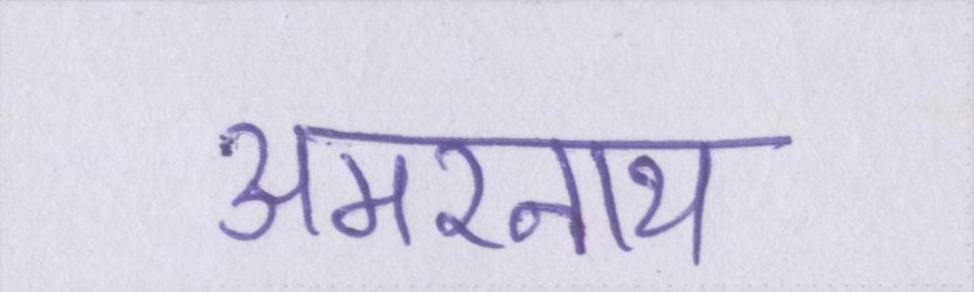 अमरनाथ